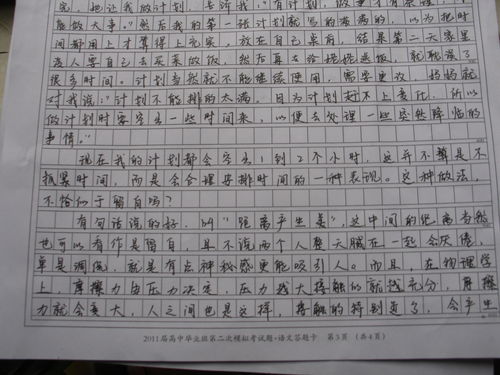 完，她让我做计划，告诉我，“有计划，做事才有条理，才
能做大事。”然后我的第一张计划就写的满满的，以为把时
间都用上才算得上充实，放在自己桌前，结果第二天家里
老人要自己去买菜做饭，然后再去给姥姥送饭，就耽误了
很多时间。计划当然就不能继续使用，需要更改，妈妈就
对我说：“计划不能排的太满，因为计划赶不上变化，所以
做计划时要空出一些时间来，以便去处理一些突然降临的
事情。”
现在我的计划都会空出1到2个小时，这并不算是不
抓紧时间，而是会合理安排时间的一种表现。这种做法，
不恰似于留白吗？
有句话说的好，叫“距离产生美”，这中间的距离当然
也可以看作是留白，且不说两个人整天腻在一起会厌倦，
单是调侃，就是有点神秘感更能吸引人。而且，在物理学
上，摩擦力由压力决定，压力越大接触的就越充分，摩擦
力就会变大，人之间也是这样，接触的特别近了，会产生
2011届高中毕业班第二次模拟考试题·语文答题卡 第3页 (共4页)